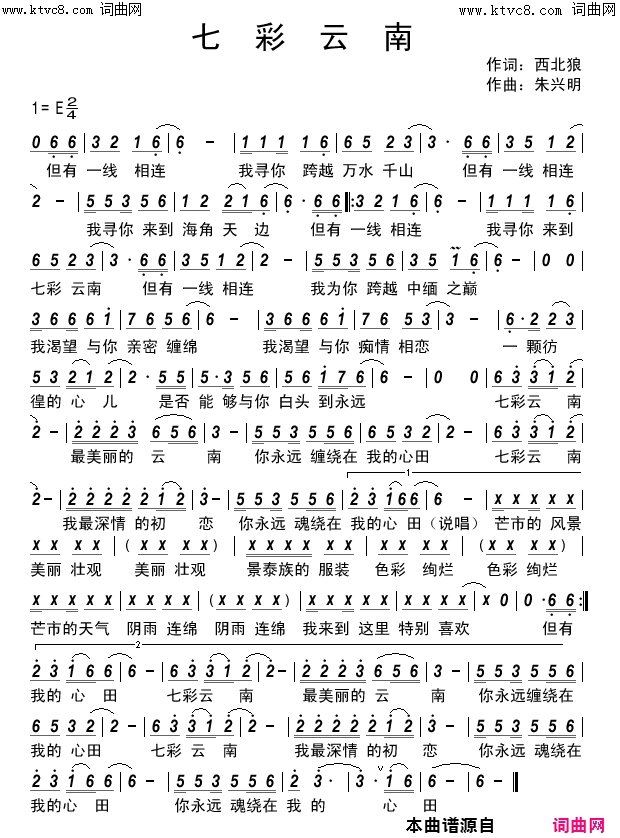 www.ktvc8.com 词曲网
www.ktvc8.com 词曲网
七彩云南
作词：西北狼
作曲：朱兴明
1=E 2/4
0 6 6 | 3 2 1 6 | 6 - | 1 1 1 1 6 | 6 5 2 3 | 3 · 6 6 | 3 5 1 2 |
但有 一线 相连 我寻你 跨越 万水 千山 但有 一线 相连
2 - | 5 5 3 5 6 | 1 2 2 1 6 | 6 · 6 6 |: 3 2 1 6 | 6 - | 1 1 1 1 6 |
我寻你 来到 海角 天 边 但有 一线 相连 我寻你 来到
6 5 2 3 | 3 · 6 6 | 3 5 1 2 | 2 - | 5 5 3 5 6 | 3 5 1 6 | 6 - | 0 0 |
七彩 云南 但有 一线 相连 我为你 跨越 中缅 之巅
3 6 6 6 1 | 7 6 5 6 | 6 - | 3 6 6 6 1 | 7 6 2 3 | 3 - | 6 · 2 2 3 |
我渴望 与你 亲密 缠绵 我渴望 与你 痴情 相恋 一 颗彷
5 3 2 1 2 | 2 · 5 5 | 5 · 5 5 6 | 5 6 1 7 6 | 6 - | 0 0 | 6 3 3 1 2 |
徨的 心 儿 是否 能 够与你 白头 到永远 七彩云 南
2 - | 2 2 2 3 | 6 5 6 | 3 - | 5 5 3 5 5 6 | 6 5 3 2 | 2 - | 6 3 3 1 2 |
最美丽的 云 南 你永远 缠绕在 我的心田 七彩云 南
2 - | 2 2 2 2 2 1 2 | 3 - | 5 5 3 5 5 6 | 2 3 1 6 6 | 6 - | x x x x x |
1
我最深情 的初 恋 你永远 魂绕在 我的心 田（说唱）芒市的 风景
x x x x | (x x x x) | x x x x x x | x x x x | (x x x x) |
美丽 壮观 美丽 壮观 景泰族的 服装 色彩 绚烂 色彩 绚烂
x x x x x | x x x x | (x x x x) | x x x x x | x x x x | x 0 | 0 · 6 6 :|
芒市的天气 阴雨 连绵 阴雨 连绵 我来到 这里 特别 喜欢 但有
2
2 3 1 6 6 | 6 - | 6 3 3 1 2 | 2 - | 2 2 2 3 6 5 6 | 3 - | 5 5 3 5 5 6 |
我的 心 田 七彩云 南 最美丽的 云 南 你永远缠绕在
6 5 3 2 | 2 - | 6 3 3 1 2 | 2 - | 2 2 2 2 2 1 2 | 3 - | 5 5 3 5 5 6 |
我的 心田 七彩 云 南 我最深情 的初 恋 你永远 魂绕在
2 3 1 6 6 | 6 - | 5 5 3 5 5 6 | 2 3 · | 3 - | 1 6 | 6 - | 6 0 |
我的心 田 你永远 魂绕在 我 的 心 田
本曲谱源自 词曲网